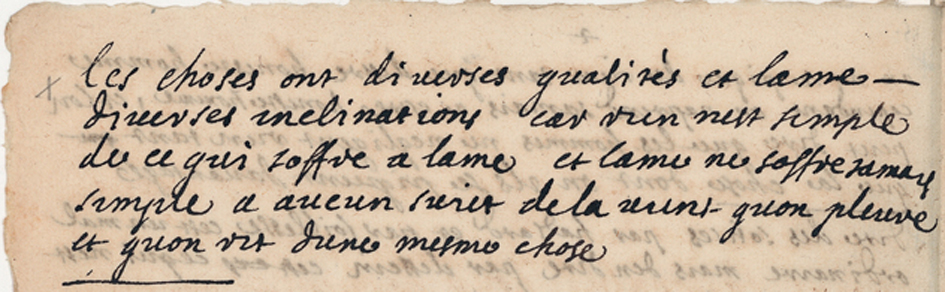 les choses ont diverses qualités et lame
diverses inclinations car rien nest simple
de ce qui soffre a lame et lame ne soffre jamais
simple a aucun suiet de la vient quon pleure
et quon rit dune mesme chose